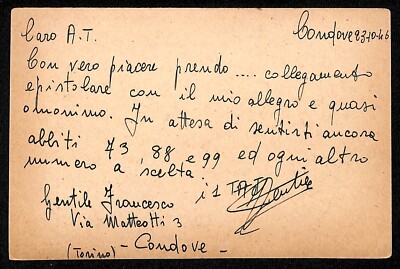 Caro A.T. Condove 23-10-46
Con vero piacere prendo .... collegamento
epistolare con il mio allegro e quasi
omonimo. In attesa di sentirti ancora
abbiti 73, 88 e 99 ed ogni altro
numero a scelta.
i1
Gentile Francesco
Via Matteotti 3
(Torino) - Condove -